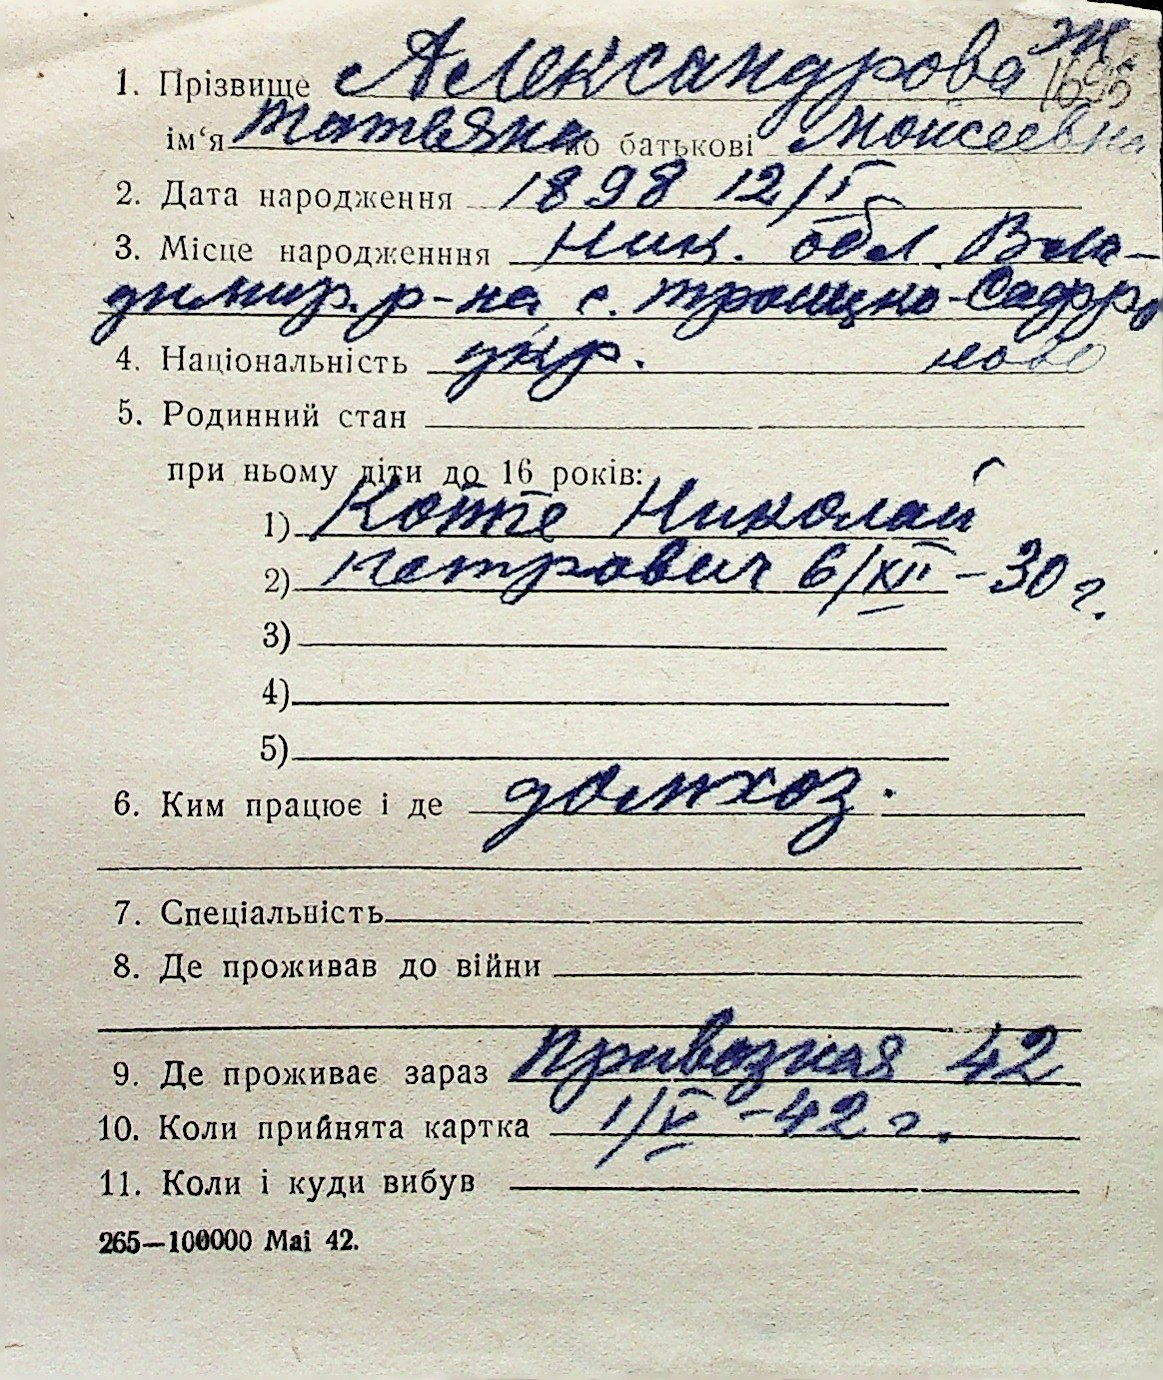 ж
1. Прізвище Александрова 1695
ім‘я Татьяна по батькові Моисеевна
2. Дата народження 1898 12/I
3. Місце народженння Ник. обл. Вла-
димир. р-на, с. Троицко-Сафро
ново
4. Національність укр.
5. Родинний стан
при ньому діти до 16 років:
1) Котте Николай
2) Петрович 6/XII – 30 г.
3)
4)
5)
6. Ким працює і де домхоз.
7. Спеціальність
8. Де проживав до війни
9. Де проживає зараз Привозная 42
10. Коли прийнята картка 1/V – 42 г.
11. Коли і куди вибув
265—100000 Mai 42.